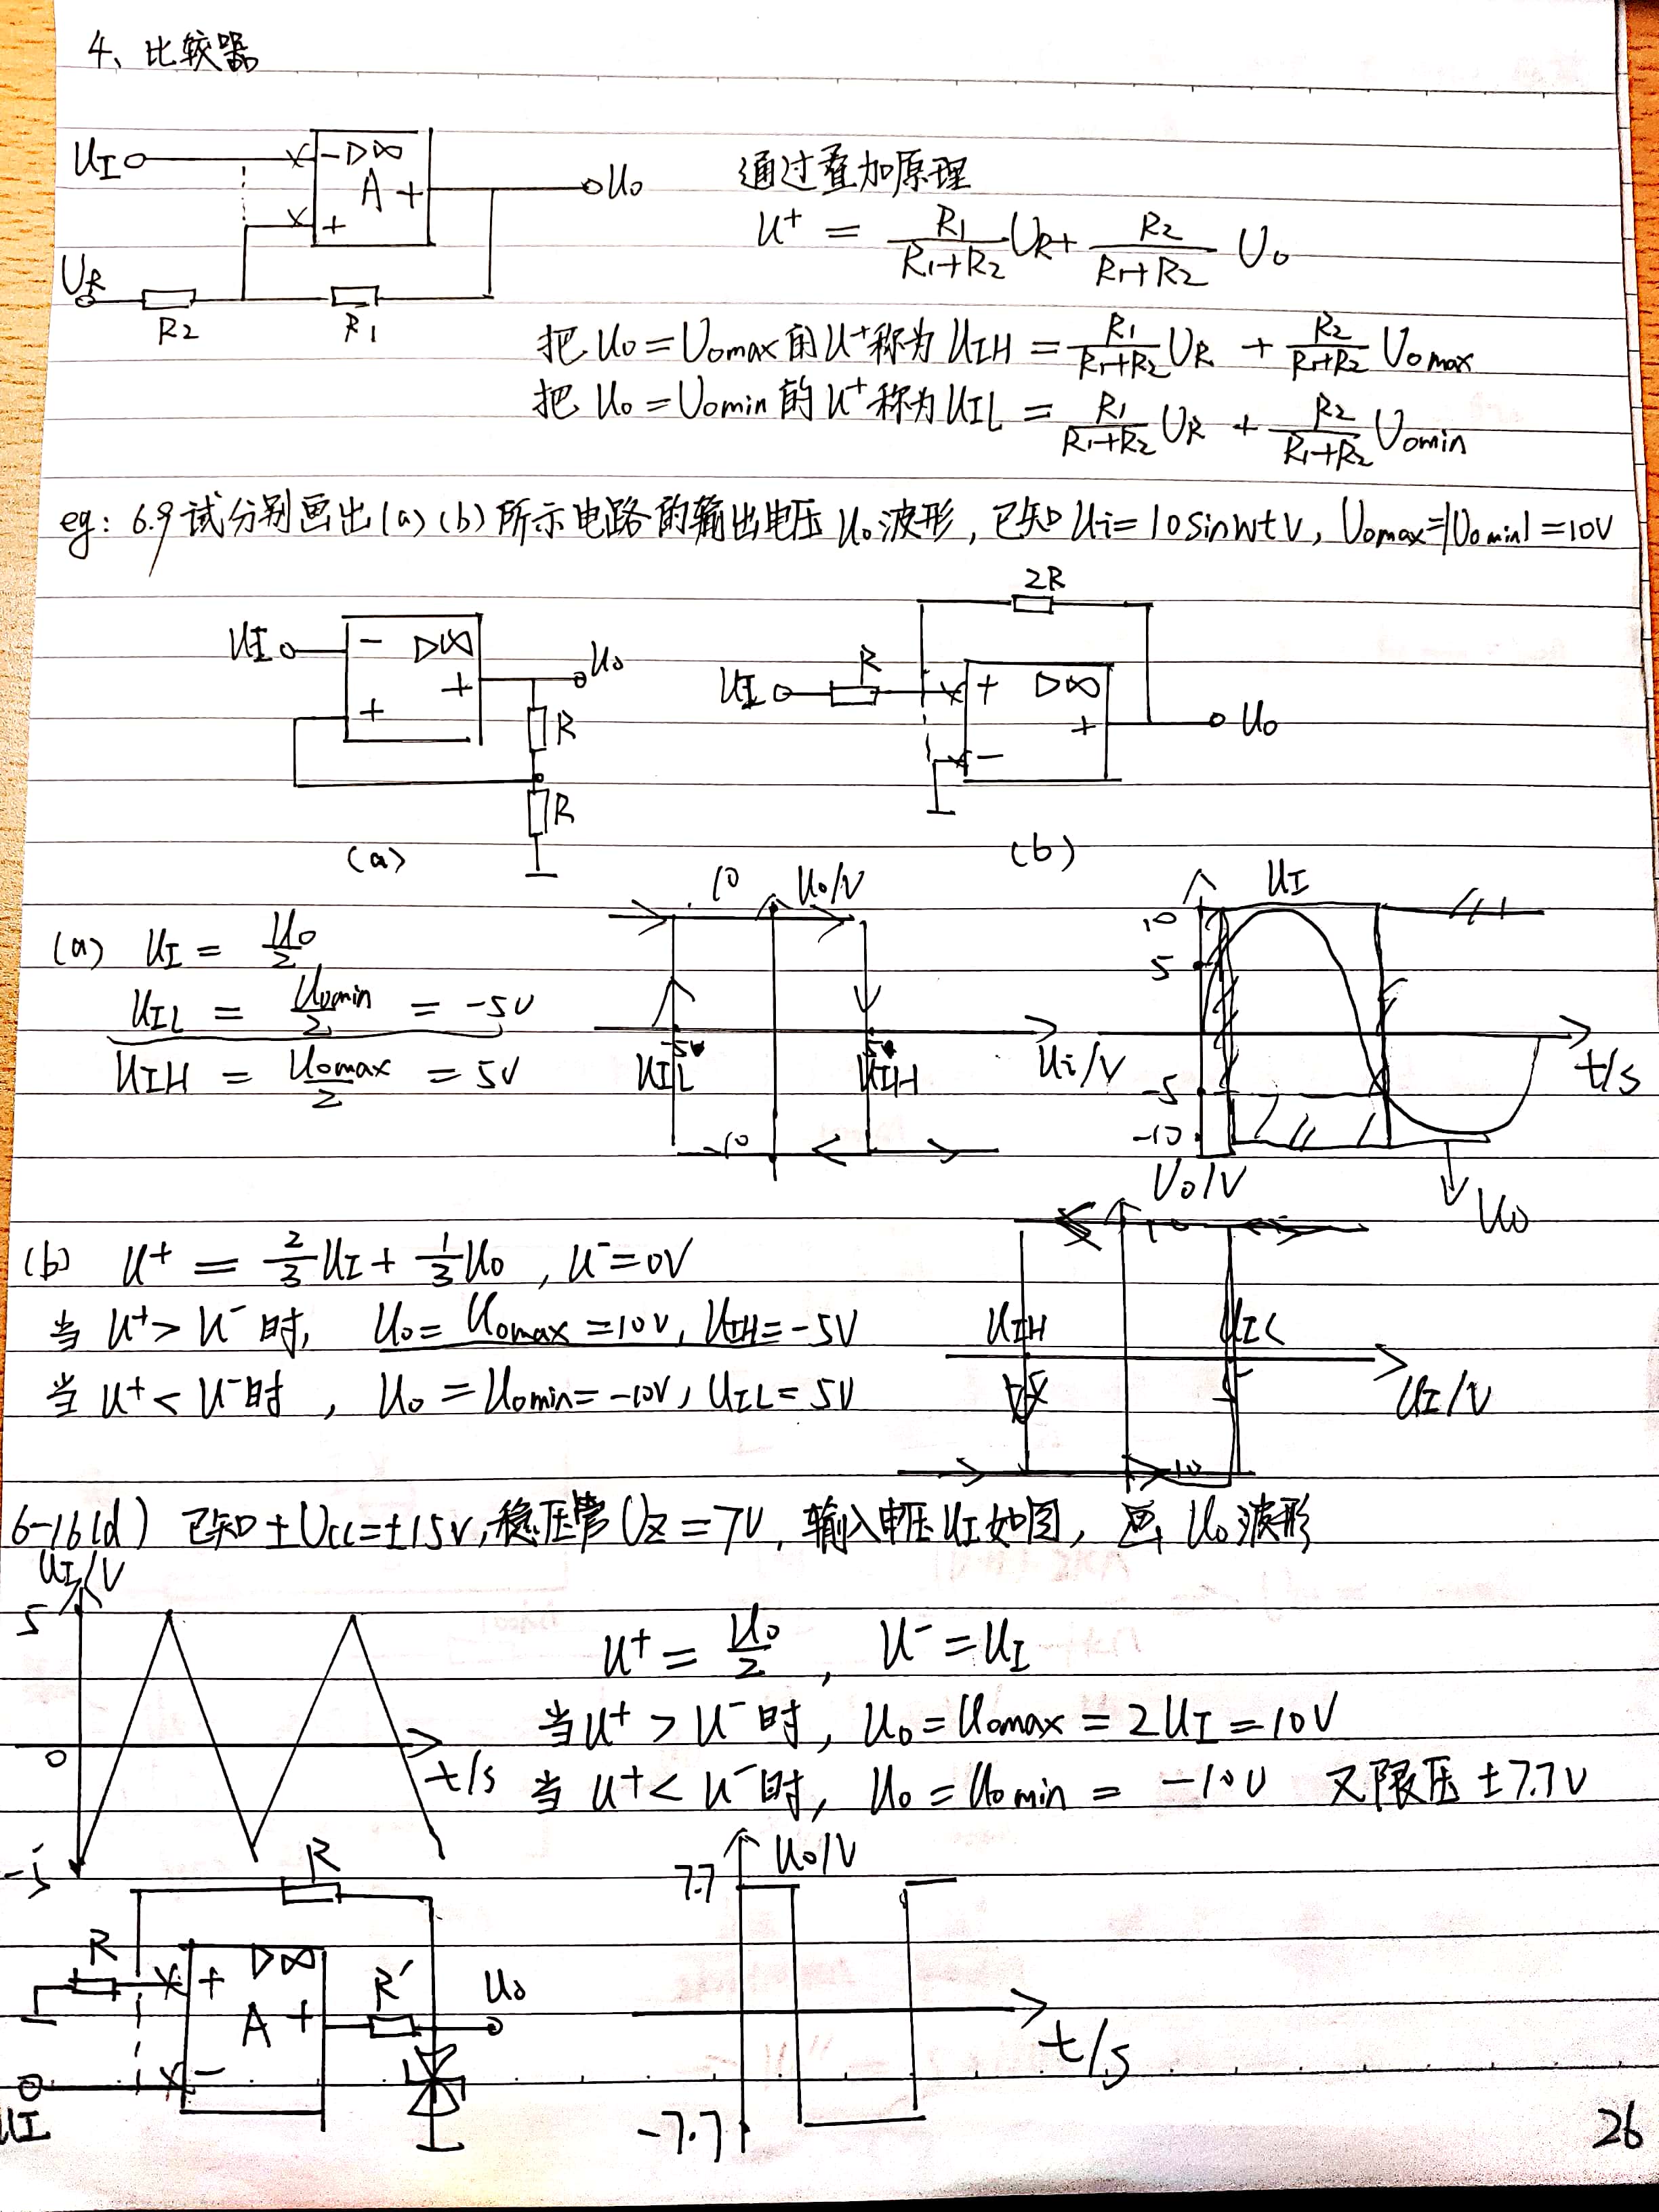 4、比较器
UI
-▷∞
A +
+
Uo
UR
R2
R1
通过叠加原理
U+ = R1/(R1+R2) UR + R2/(R1+R2) Uo
把 Uo = Uomax 的 U+ 称为 UIH = R1/(R1+R2) UR + R2/(R1+R2) Uomax
把 Uo = Uomin 的 U+ 称为 UIL = R1/(R1+R2) UR + R2/(R1+R2) Uomin
eg: 6.9 试分别画出(a)(b)所示电路的输出电压Uo波形, 已知 Ui=10sinwtV, Uomax=|Uomin|=10V
UI
- ▷∞
+
+
Uo
R
R
(a)
2R
UI
R
+ ▷∞
+
-
Uo
(b)
(a) UI = Uo/2
UIL = Uomin/2 = -5V
UIH = Uomax/2 = 5V
10 Uo/V
-5V
5V
UIL
UIH
Ui/V
-10
UI
10
5
-5
-10
t/s
Uo
Uo/V
10
UIH
UIL
-5
5
UI/V
-10
(b) U+ = 2/3 UI + 1/3 Uo , U- = 0V
当 U+ > U- 时, Uo = Uomax = 10V, UIH = -5V
当 U+ < U- 时, Uo = Uomin = -10V, UIL = 5V
6-16(d) 已知±Ucc=±15V,稳压管Uz=7V, 输入电压UI如图, 画 Uo波形
UI/V
5
0
t/s
-5
U+ = Uo/2 , U- = UI
当U+ > U- 时, Uo = Uomax = 2UI = 10V
当 U+ < U- 时, Uo = Uomin = -10V 又限压±7.7V
R
R
+ ▷∞
A +
-
R'
Uo
UI
Uo/V
7.7
t/s
-7.7
26